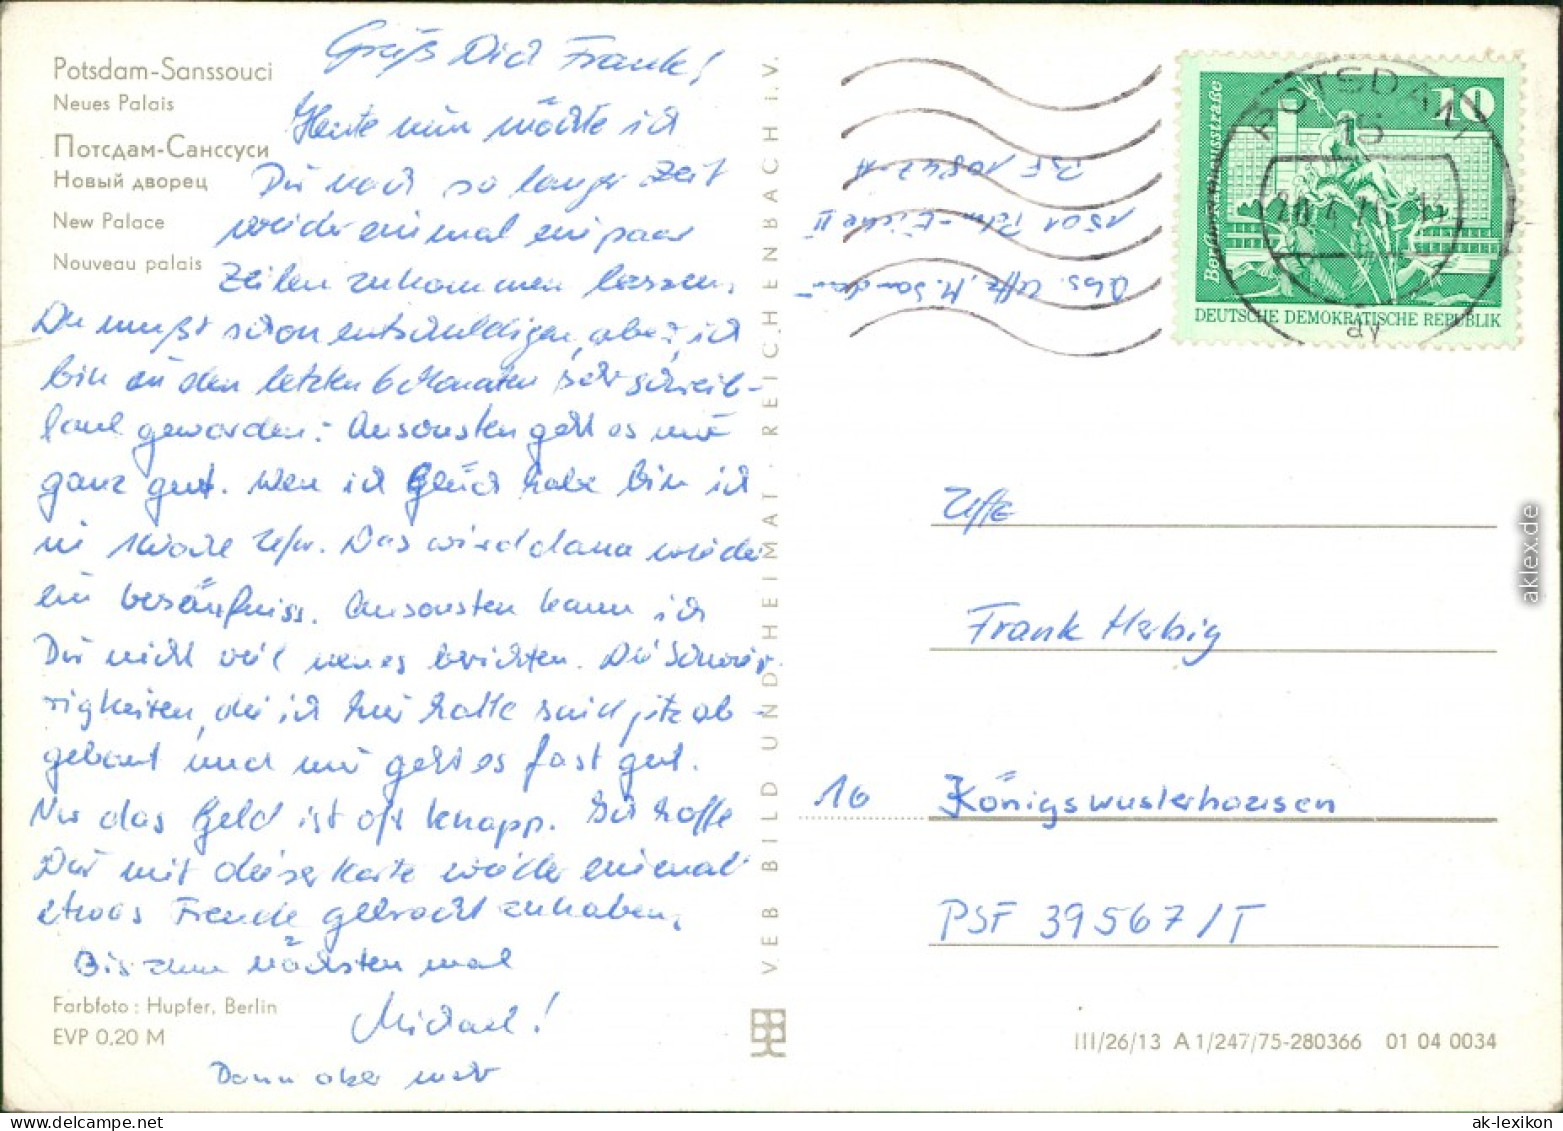 Potsdam-Sanssouci
Neues Palais
Потсдам-Сансcуси
Новый дворец
New Palace
Nouveau palais
Grüß Dich Frank!
Heute nun möchte ich
Dir nach so langer Zeit
wieder einmal ein paar
Zeilen zukommen lassen.
Du mußt schon entschuldigen, aber ich
bin in den letzten 6 Monaten sehr schreib-
faul geworden. Ansonsten geht es mir
ganz gut. Wen ich Glück habe bin ich
in 1 Woche Ufw. Das wird dann wieder
ein besäufniss. Ansonsten kann ich
Dir nicht viel neues berichten. Die Schwie-
rigkeiten, die ich hier hatte sind jetz ab-
gebaut und mir geht es fast gut.
Nur das Geld ist oft knapp. Ich hoffe
Dir mit dieser Karte wieder einmal
etwas Freude gebracht zu haben.
Bis zum nächsten mal
Michael!
Dann aber mehr
Farbfoto: Hupfer, Berlin
EVP 0,20 M
VEB BILD UND HEIMAT · REICHENBACH i. V.
Abs. Uffz. M.
1501 Eiche II
PSF 10847 A
Berlin Rathausstraße
10
DEUTSCHE DEMOKRATISCHE REPUBLIK
POTSDAM
15
ay
Uffz
Frank Herbig
16 Königswusterhausen
PSF 39567/T
III/26/13 A 1/247/75-280366 01 04 0034
aklex.de
ak-lexikon